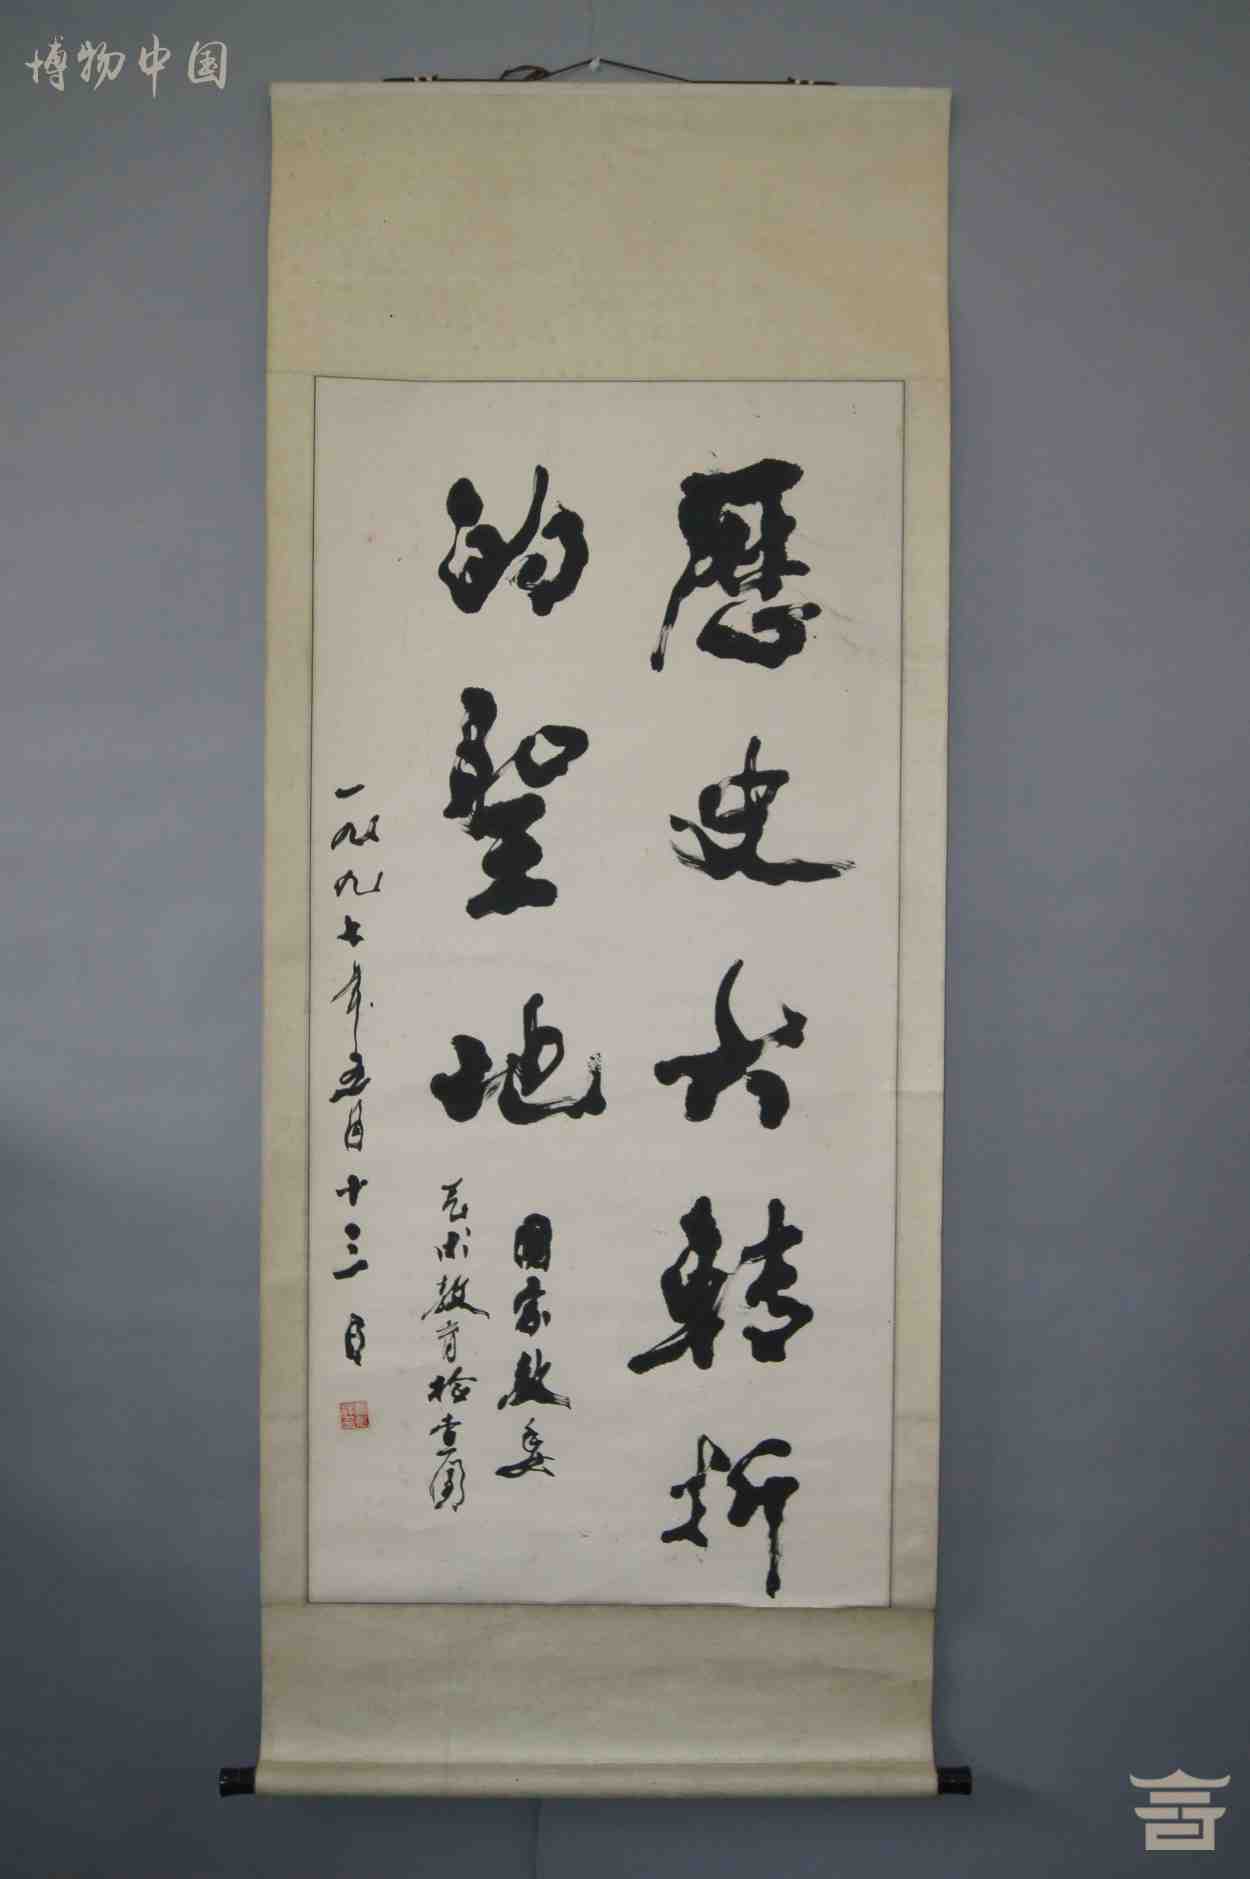 博物中国
歷史大轉折
的聖地
國家教委
艺术教育检查團
一九九七年五月十三日